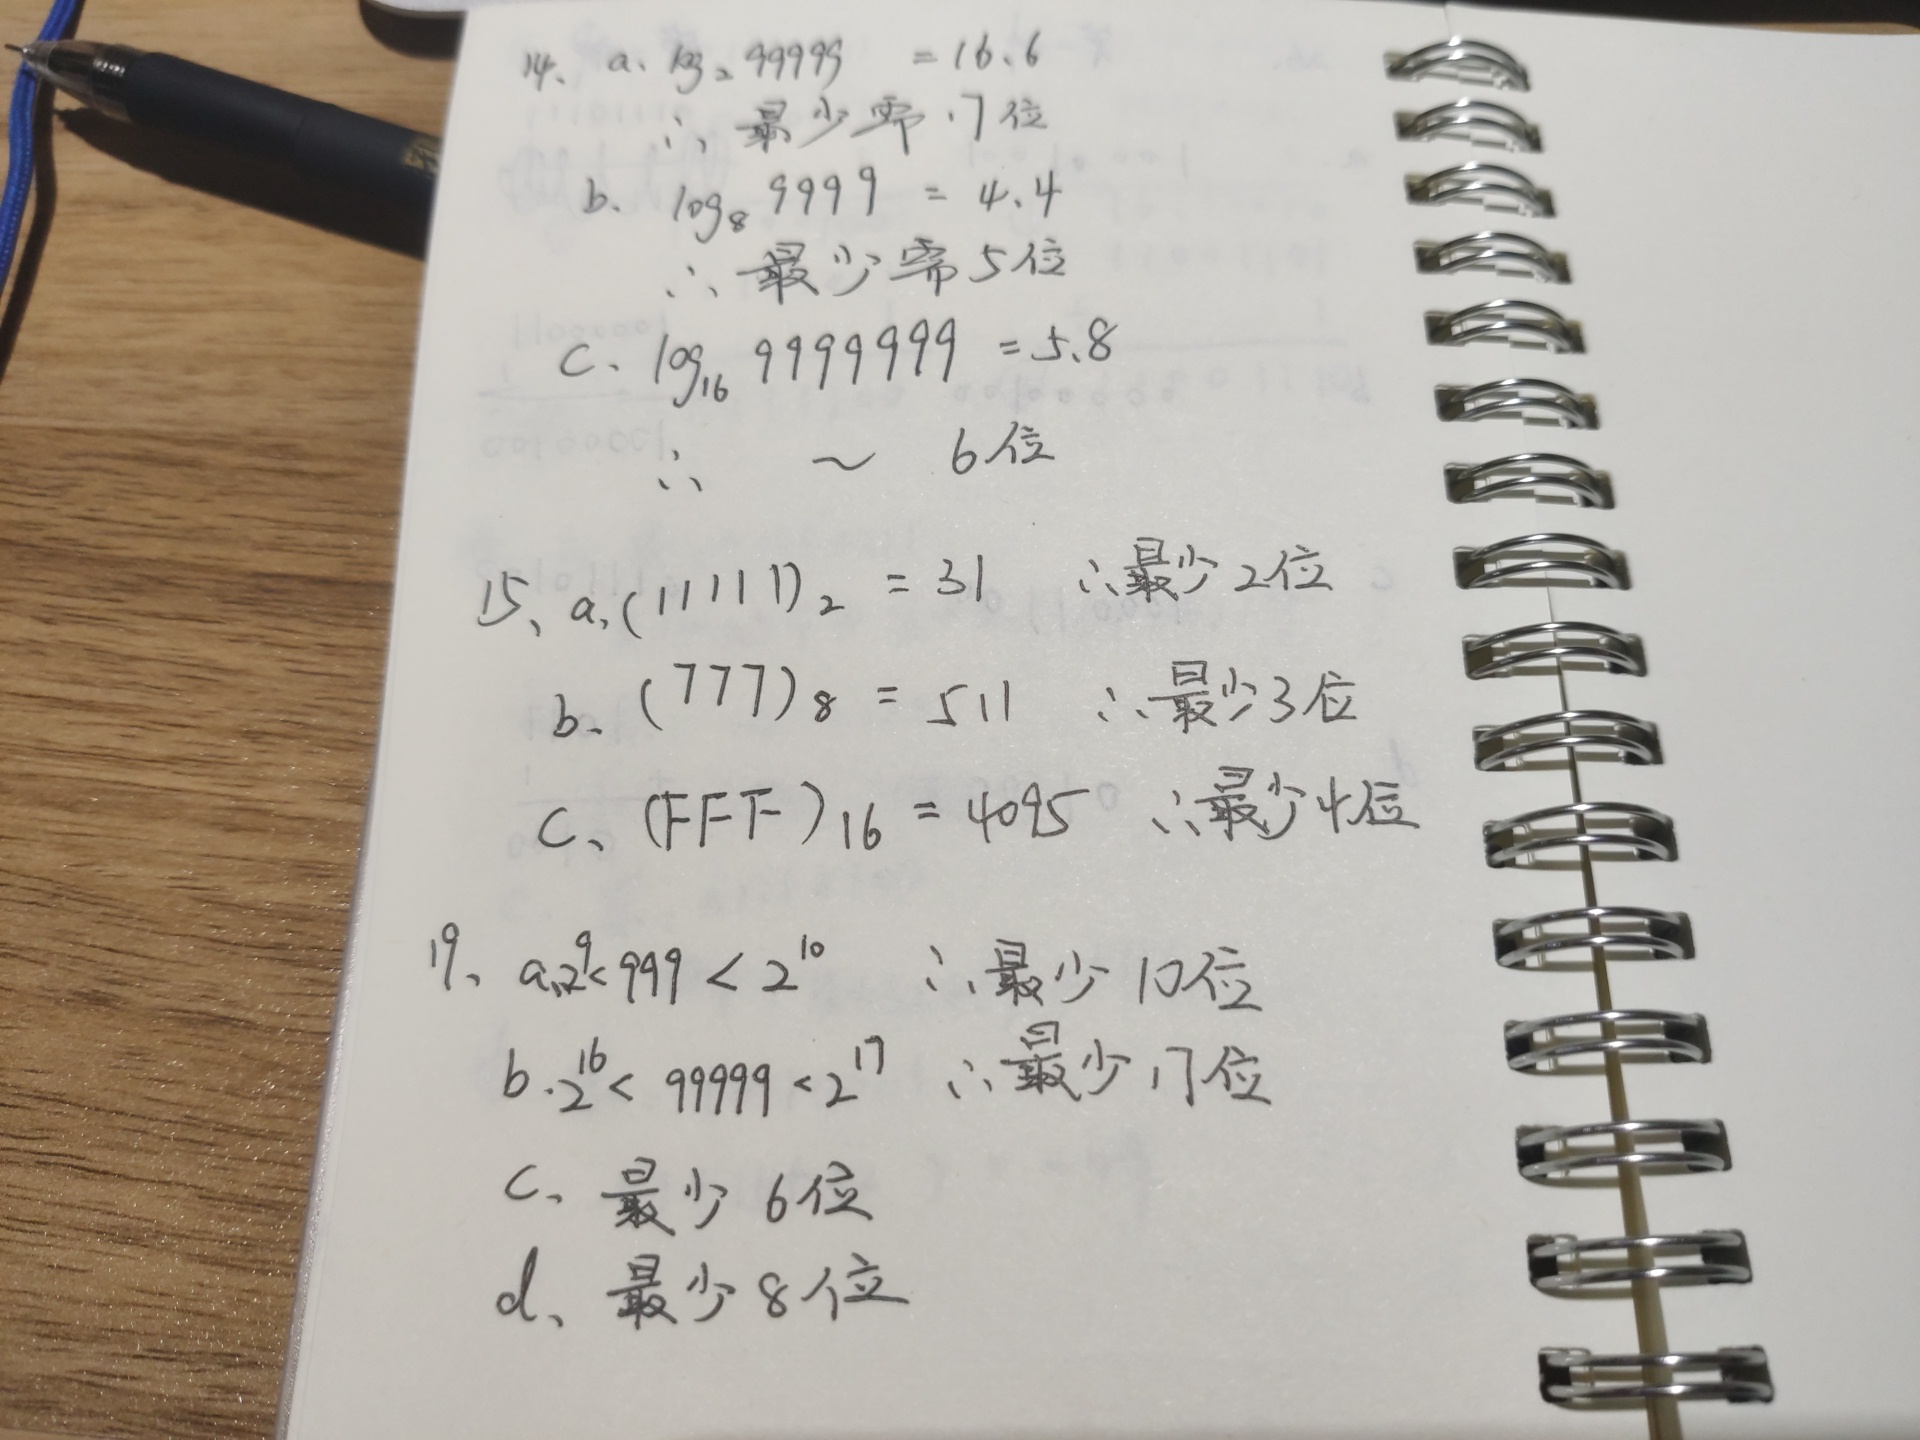 14、 a、 log₂ 99999 = 16.6
∴ 最少需 17位
b. log₈ 9999 = 4.4
∴ 最少需5位
c、 log₁₆ 9999999 = 5.8
∴ ~ 6位
15、 a、(11111)₂ = 31 ∴最少2位
b. (777)₈ = 511 ∴最少3位
c、 (FFF)₁₆ = 4095 ∴最少4位
19、 a、2⁹< 999 < 2¹⁰ ∴最少 10位
b.2¹⁶< 99999 < 2¹⁷ ∴最少 17位
c、 最少 6位
d、 最少 8位